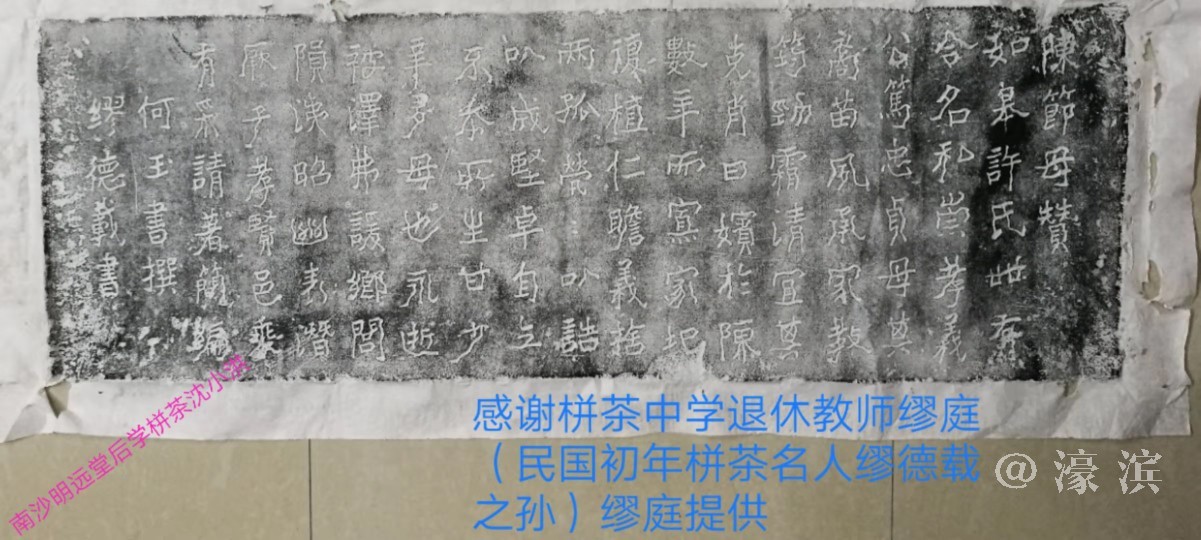 陳節母贊
如皋許氏世有
名崇孝義
公篤忠貞母其
裔苗夙承家教
筠勁霜清宜其
克肖曰嬪於陳
數年而寡家圮
復植仁瞻義捨
兩孤煢：以誥
以成堅卓自立
忝所生甘少
辛多母也永逝
被澤弗諼鄉閭
隕涕昭幽表潛
厥子孝賢邑乘
有采請著簡編
何玉書撰
繆德載書
南沙明远堂后学栟茶沈小洪
感谢栟茶中学退休教师缪庭
（民国初年栟茶名人缪德载
之孙）缪庭提供
@濠滨